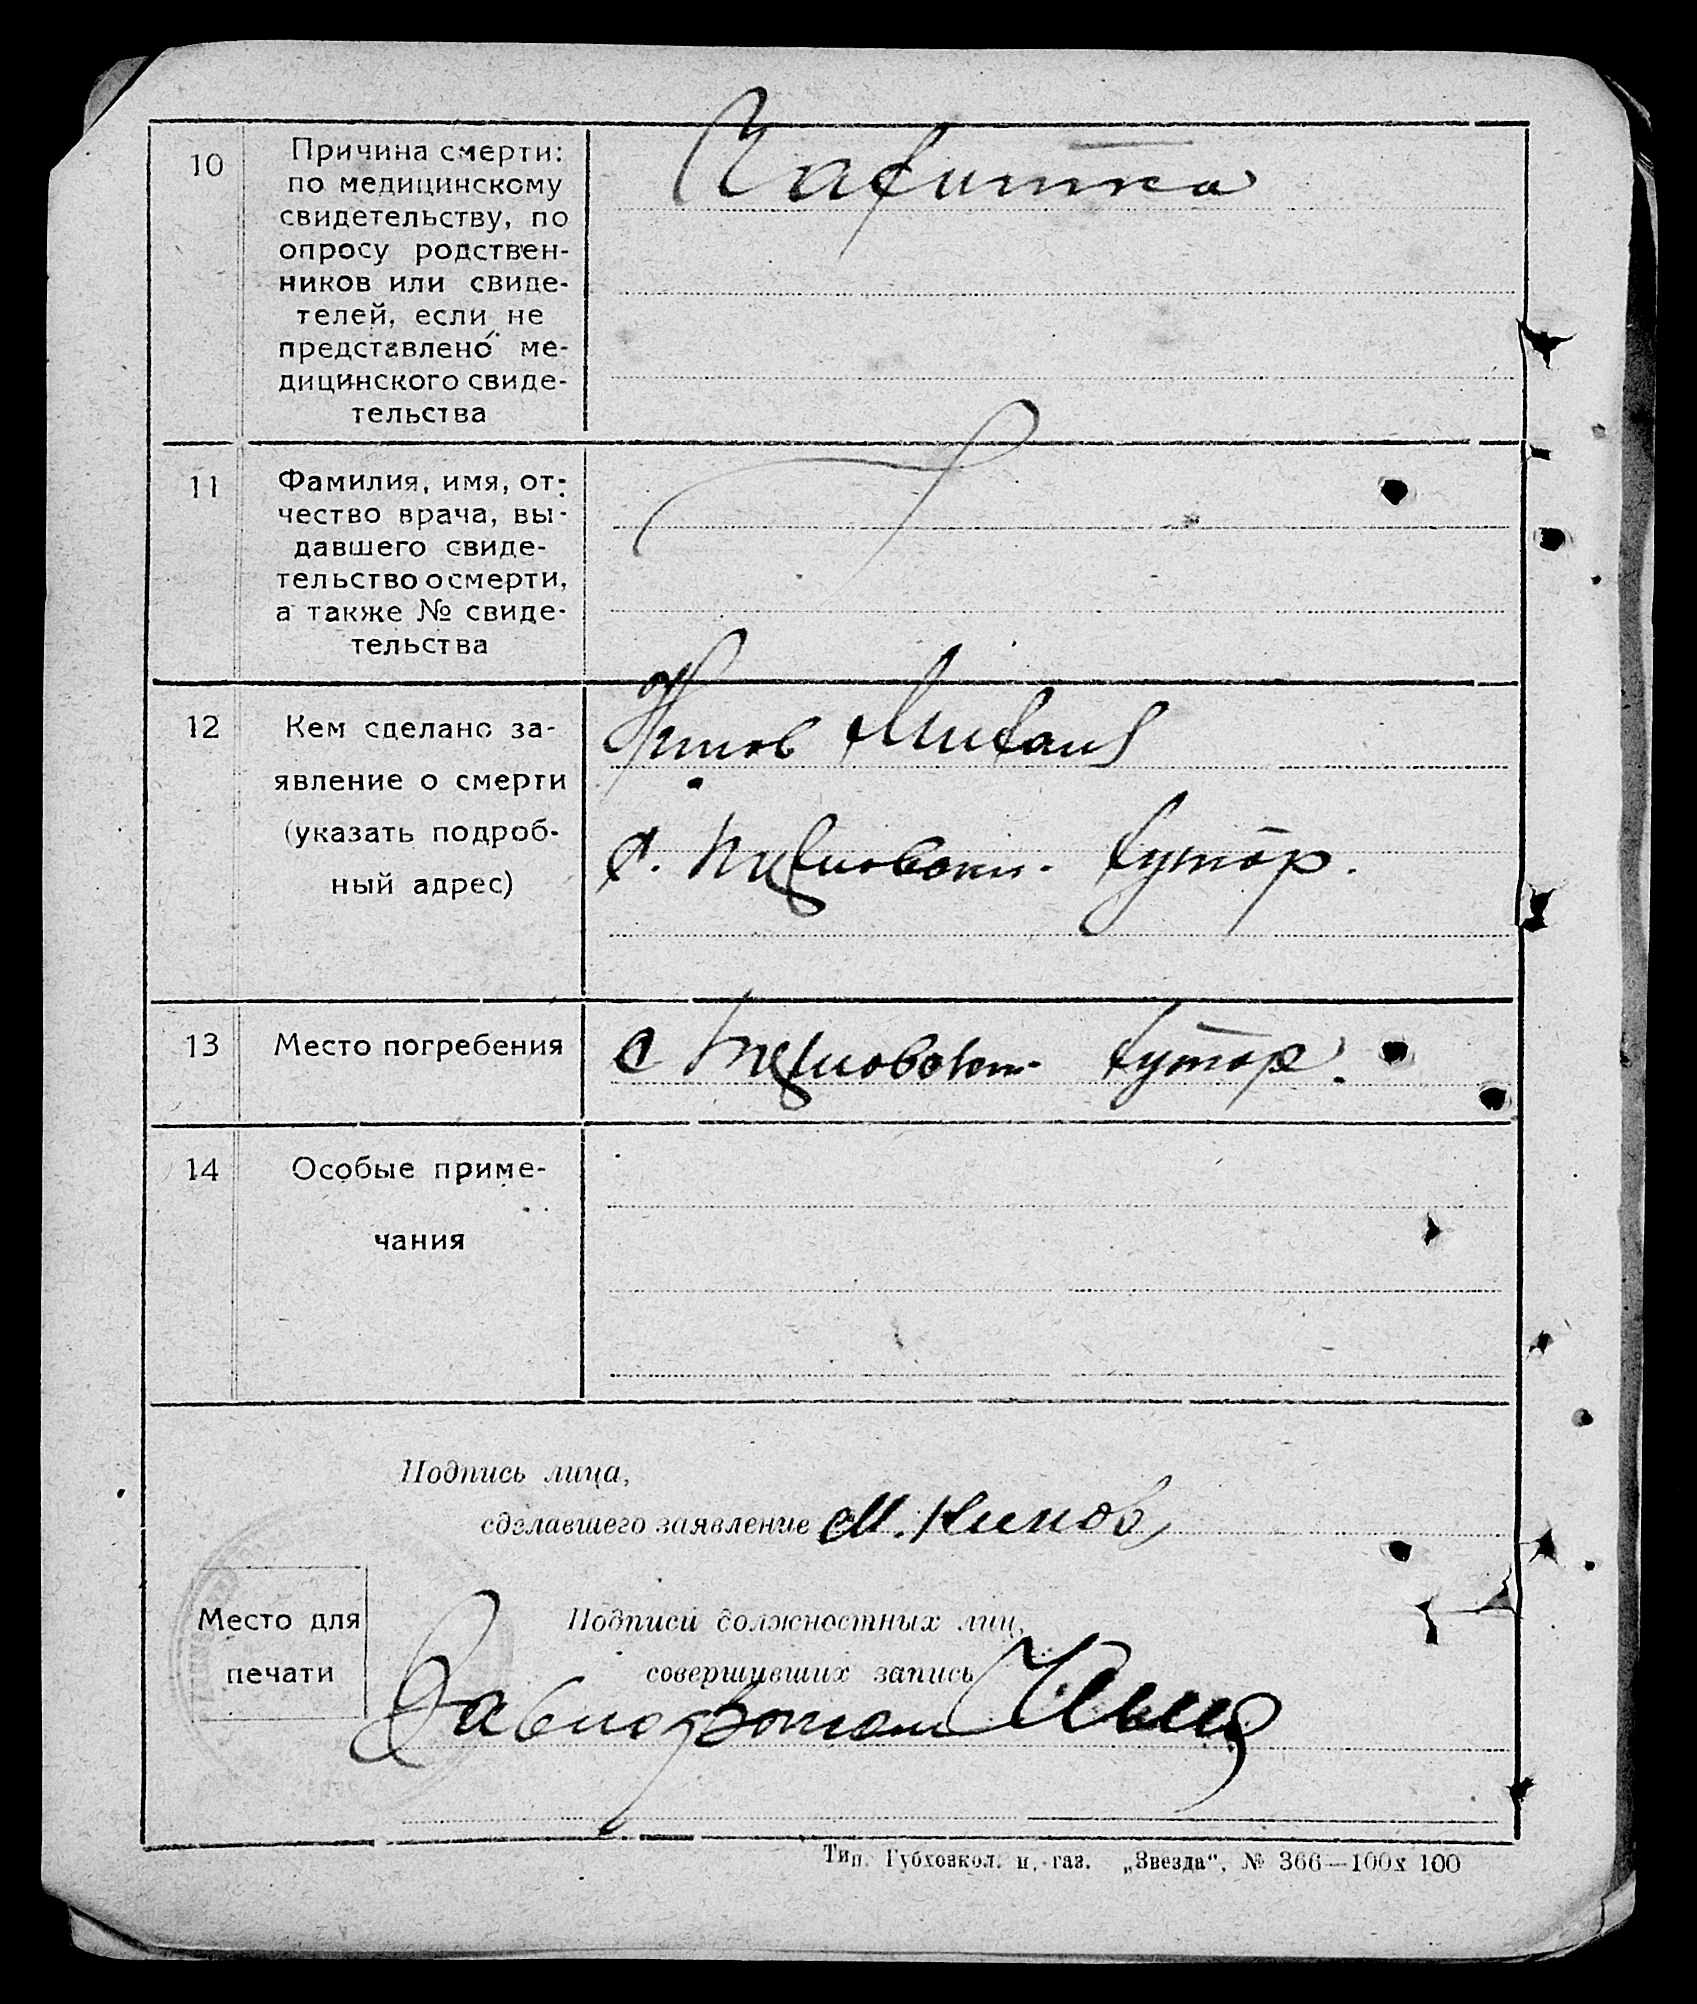 10
Причина смерти:
по медицинскому
свидетельству, по
опросу родствен-
ников или свиде-
телей, если не
представлено ме-
дицинского свиде-
тельства
Чахотка
11
Фамилия, имя, от-
чество врача, вы-
давшего свиде-
тельство о смерти,
а также № свиде-
тельства
12
Кем сделано за-
явление о смерти
(указать подроб-
ный адрес)
Михаил
с. хутор.
13
Место погребения
с хутор.
14
Особые приме-
чания
Подпись лица,
сделавшего заявление М. Кинов
Место для
печати
Подписи должностных лиц,
совершивших запись
Тип. Губхозкол. и, газ. „Звезда“, № 366—100х 100